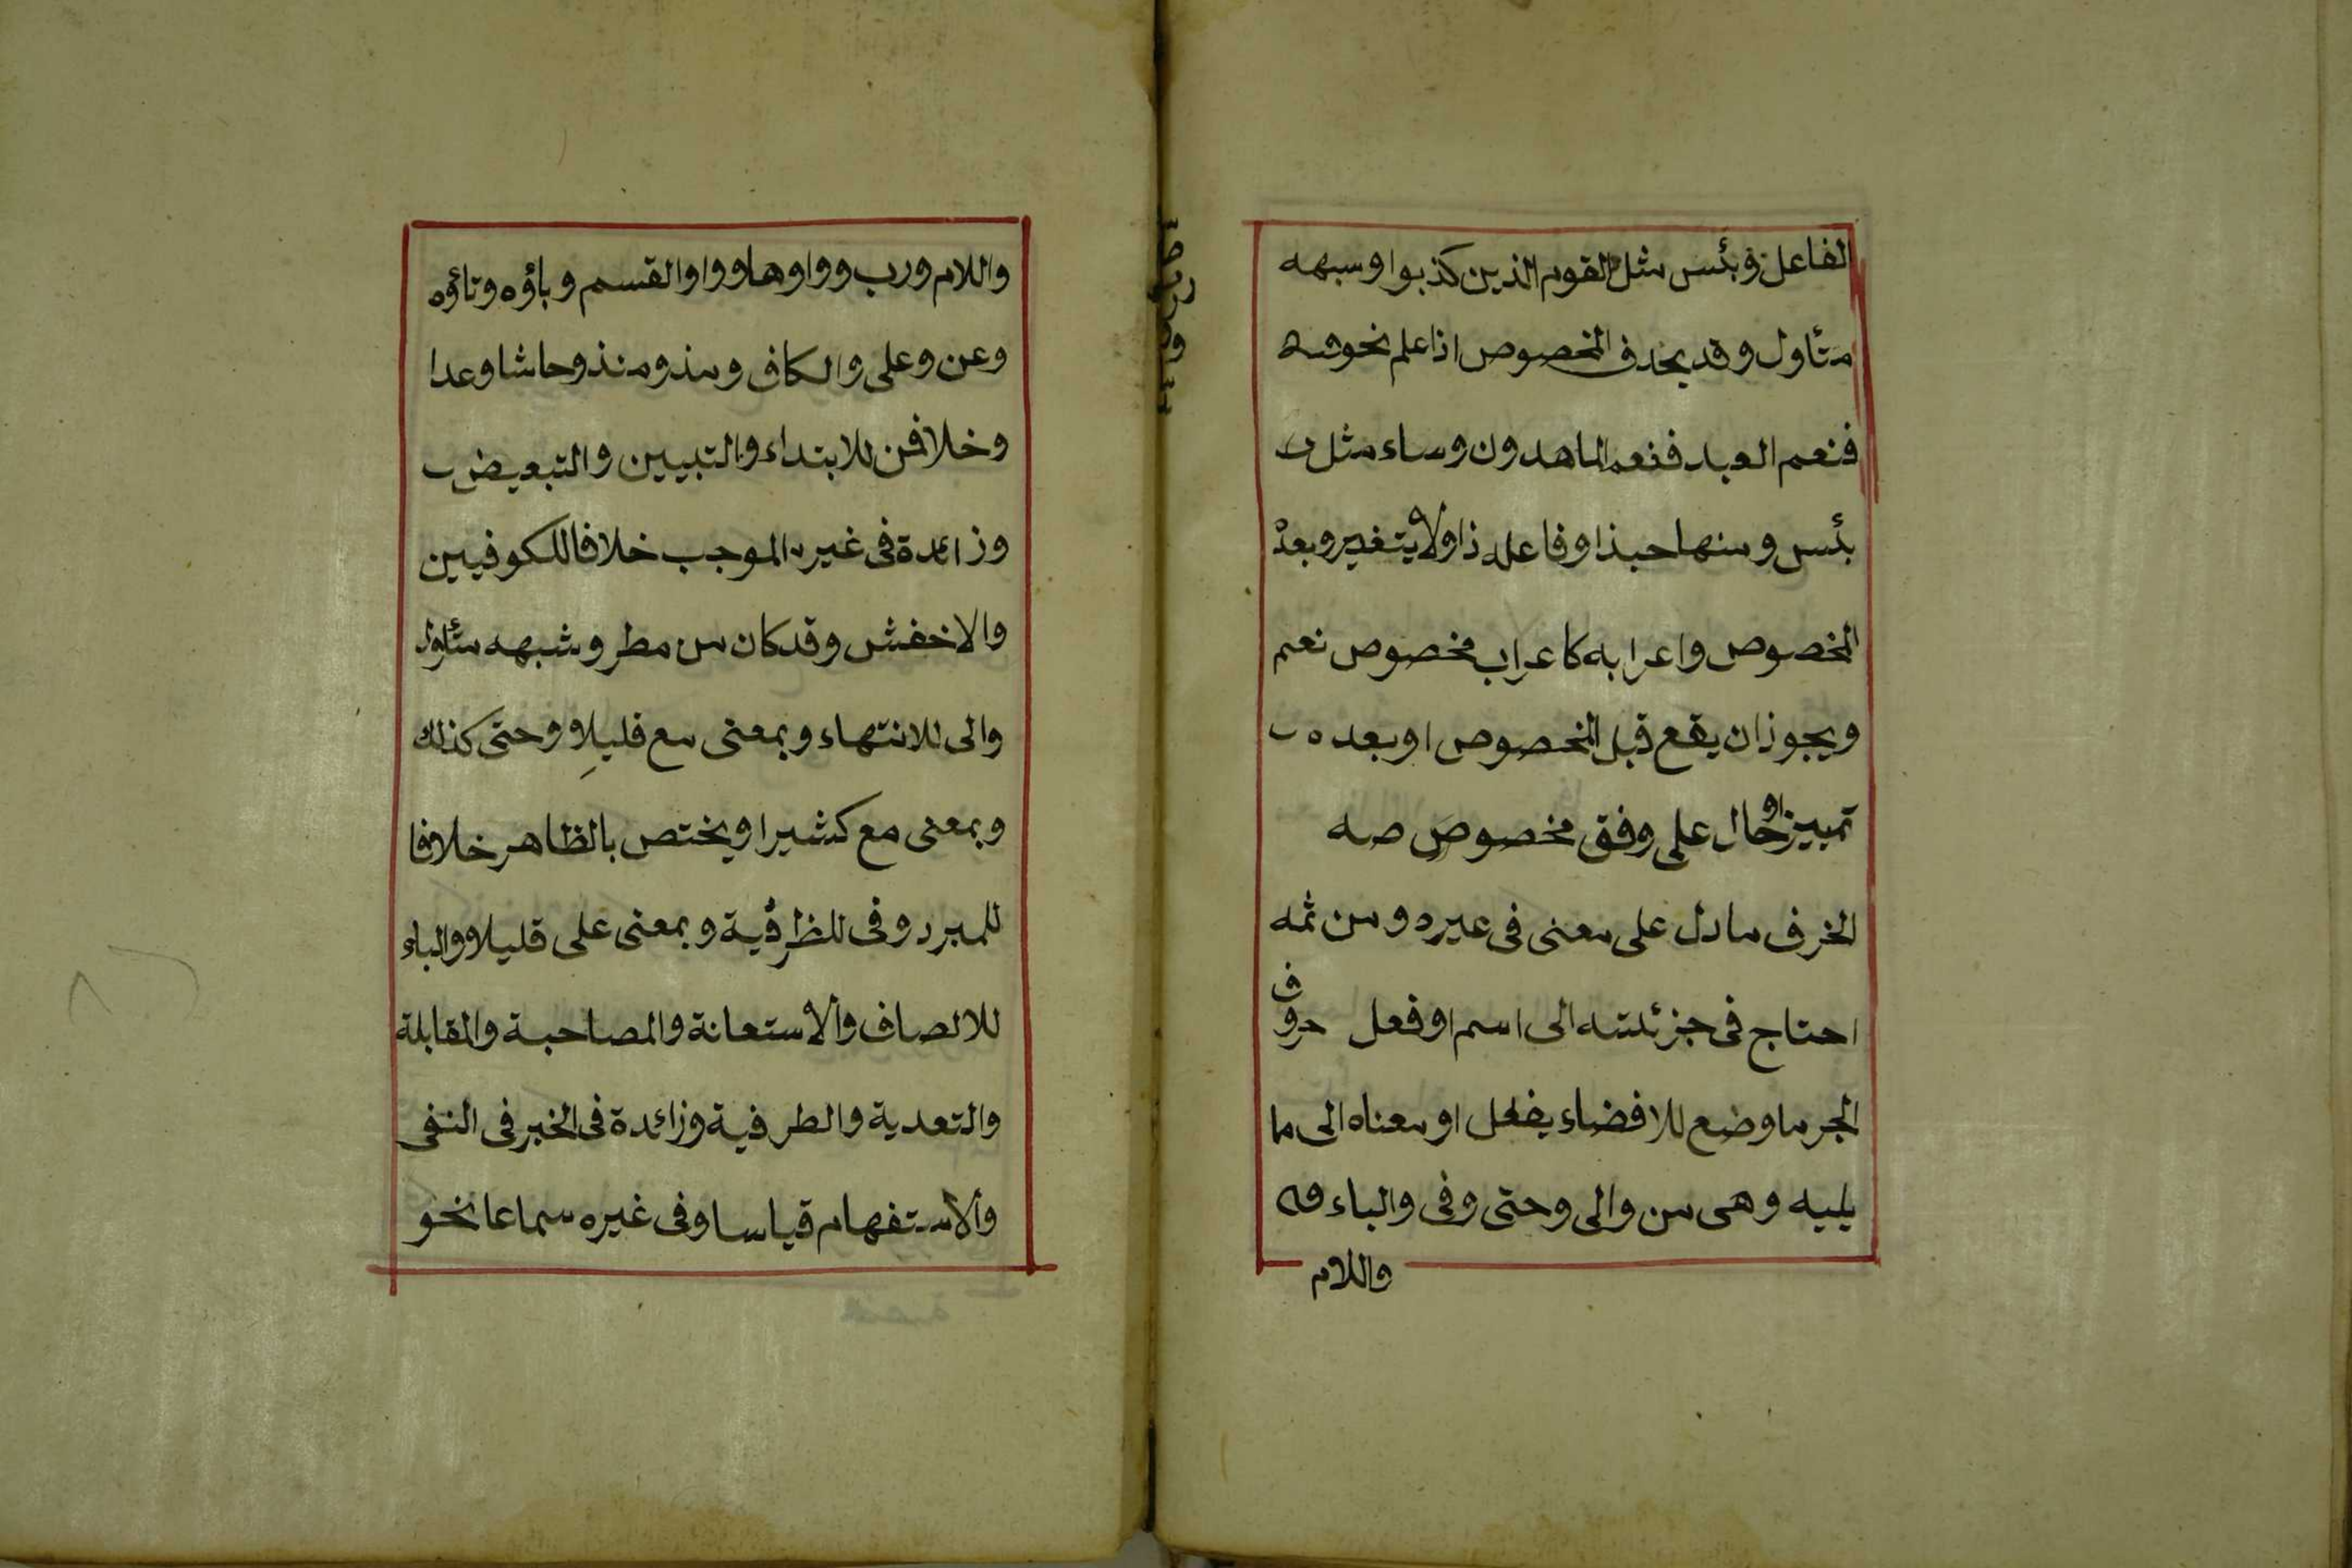 الفاعل وبئس مثل القوم الذين كذبوا وسبهه
متأول وقد يحذف المخصوص اذا علم نحو
فنعم العبد فنعم الماهدون وساء مثل
بئس ومنها حبذا وفاعله ذا ولا يتغير وبعده
المخصوص واعرابه كاعراب مخصوص نعم
ويجوز ان يقع قبل المخصوص او بعده
تمييز او حال على وفق مخصوص صه
الخرف ما دل على معنى فى غيره ومن ثمه
احتاج فى جزئيته الى اسم او فعل حروف
الجر ما وضع للافضاء بفعل او معناه الى ما
يليه وهى من والى وحتى وفى والباء
واللام
واللام ورب وواوها وواو القسم وباؤه وتاؤه
وعن وعلى والكاف ومذ ومنذ وحاشا وعدا
وخلا فمن للابتداء والتبيين والتبعيض
وزائدة فى غير الموجب خلافا للكوفيين
والاخفش وقد كان من مطر وشبهه متأول
والى للانتهاء وبمعنى مع قليلا وحتى كذلك
وبمعنى مع كثيرا ويختص بالظاهر خلافا
للمبرد وفى للظرفية وبمعنى على قليلا والباء
للالصاف والاستعانة والمصاحبة والمقابلة
والتعدية والطرفية وزائدة فى الخبر فى النفى
والاستفهام قياسا وفى غيره سماعا نحو